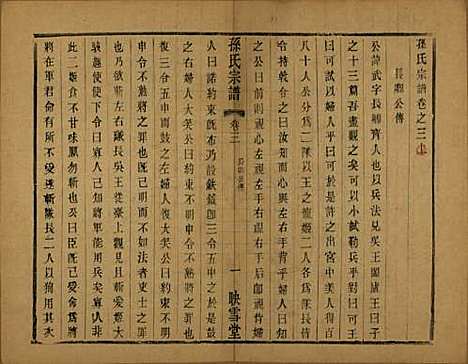 孫氏宗譜卷之三上
長卿公傳
公諱武字長卿齊人也以兵法見吳王闔廬王曰子
之十三篇吾盡觀之矣可以小試勒兵乎對曰可闔
廬曰可試以婦人乎曰可於是許之出宮中美人得百
八十人公分爲二隊以王之寵姬二人各爲隊長皆
持戟令之曰汝知而心與左右手背乎婦人曰知
之公曰前則視心左視左手右視右手後即視背婦
人曰諾約束既布乃設鈇鉞即三令五申之於是鼓
之右婦人大笑公曰約束不明申令不熟將之罪也
復三令五申而鼓之左婦人復大笑公曰約束不明
申令不熟將之罪也既已明而不如法者吏士之罪
也欲斬左右隊長吳王從臺上觀見且斬愛姬大
駭使使下令曰寡人已知將軍能用兵矣寡人非此
二姬食不甘味願勿斬也公曰臣既已受命爲將
將在軍君命有所不受遂斬隊長二人以徇用其次
孫氏宗譜
卷三
長卿公傳
一
映雪堂